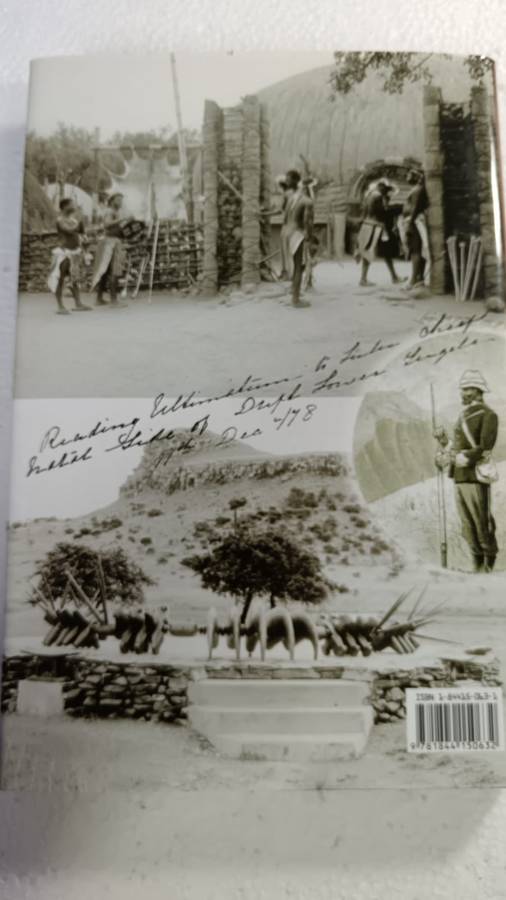 Reading Ultimatum to Zulu Chiefs
Natal Side of Drift Lower Tugela
11th Dec "/78
ISBN 1-84415-063-1
9 781844 150632